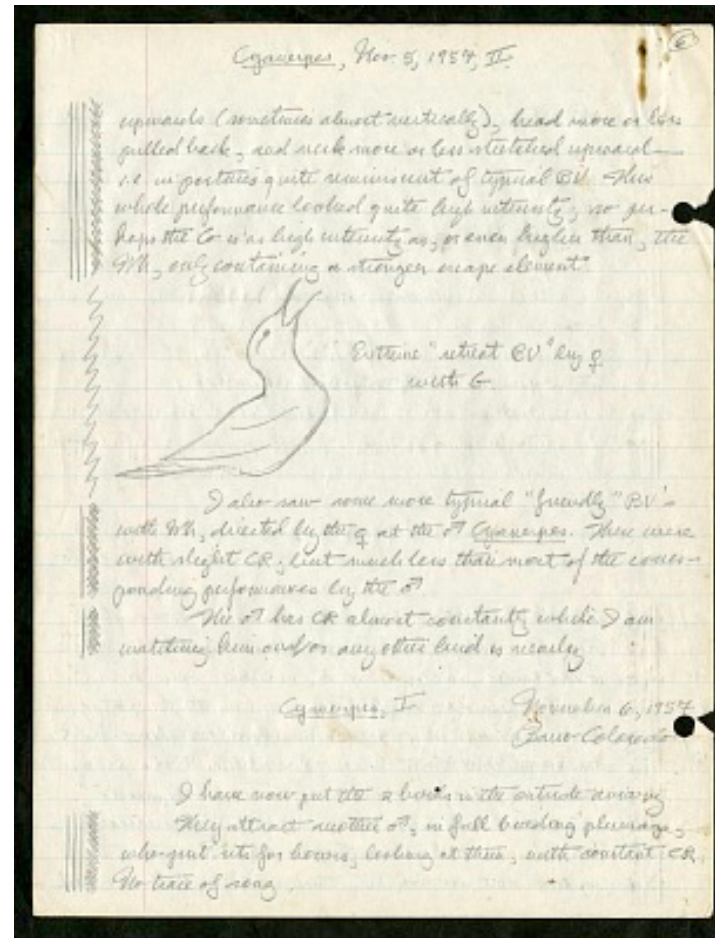 6
Cyanerpes, Nov. 5, 1957, II.
upwards (sometimes almost vertically), head more or less
pulled back, and neck more or less stretched upward —
i.e. in postures quite reminiscent of typical BV. This
whole performance looked quite high intensity, so per-
haps the Co is as high intensity as, or even higher than, the
Wh, only containing a stronger escape element.
Extreme "retreat BV" by ♀
with G.
I also saw some more typical "friendly" BV's
with Wh, directed by the ♀ at the ♂ Cyanerpes. These were
with slight CR, but much less than most of the corres-
ponding performances by the ♂.
The ♂ has CR almost constantly while I am
watching him and/or any other bird is nearby
Cyanerpes, I
November 6, 1957
Barro Colorado
I have now put the 2 birds in the outside aviary
They attract another ♂, in full breeding plumage,
who just sits for hours, looking at them, with constant CR.
No trace of song